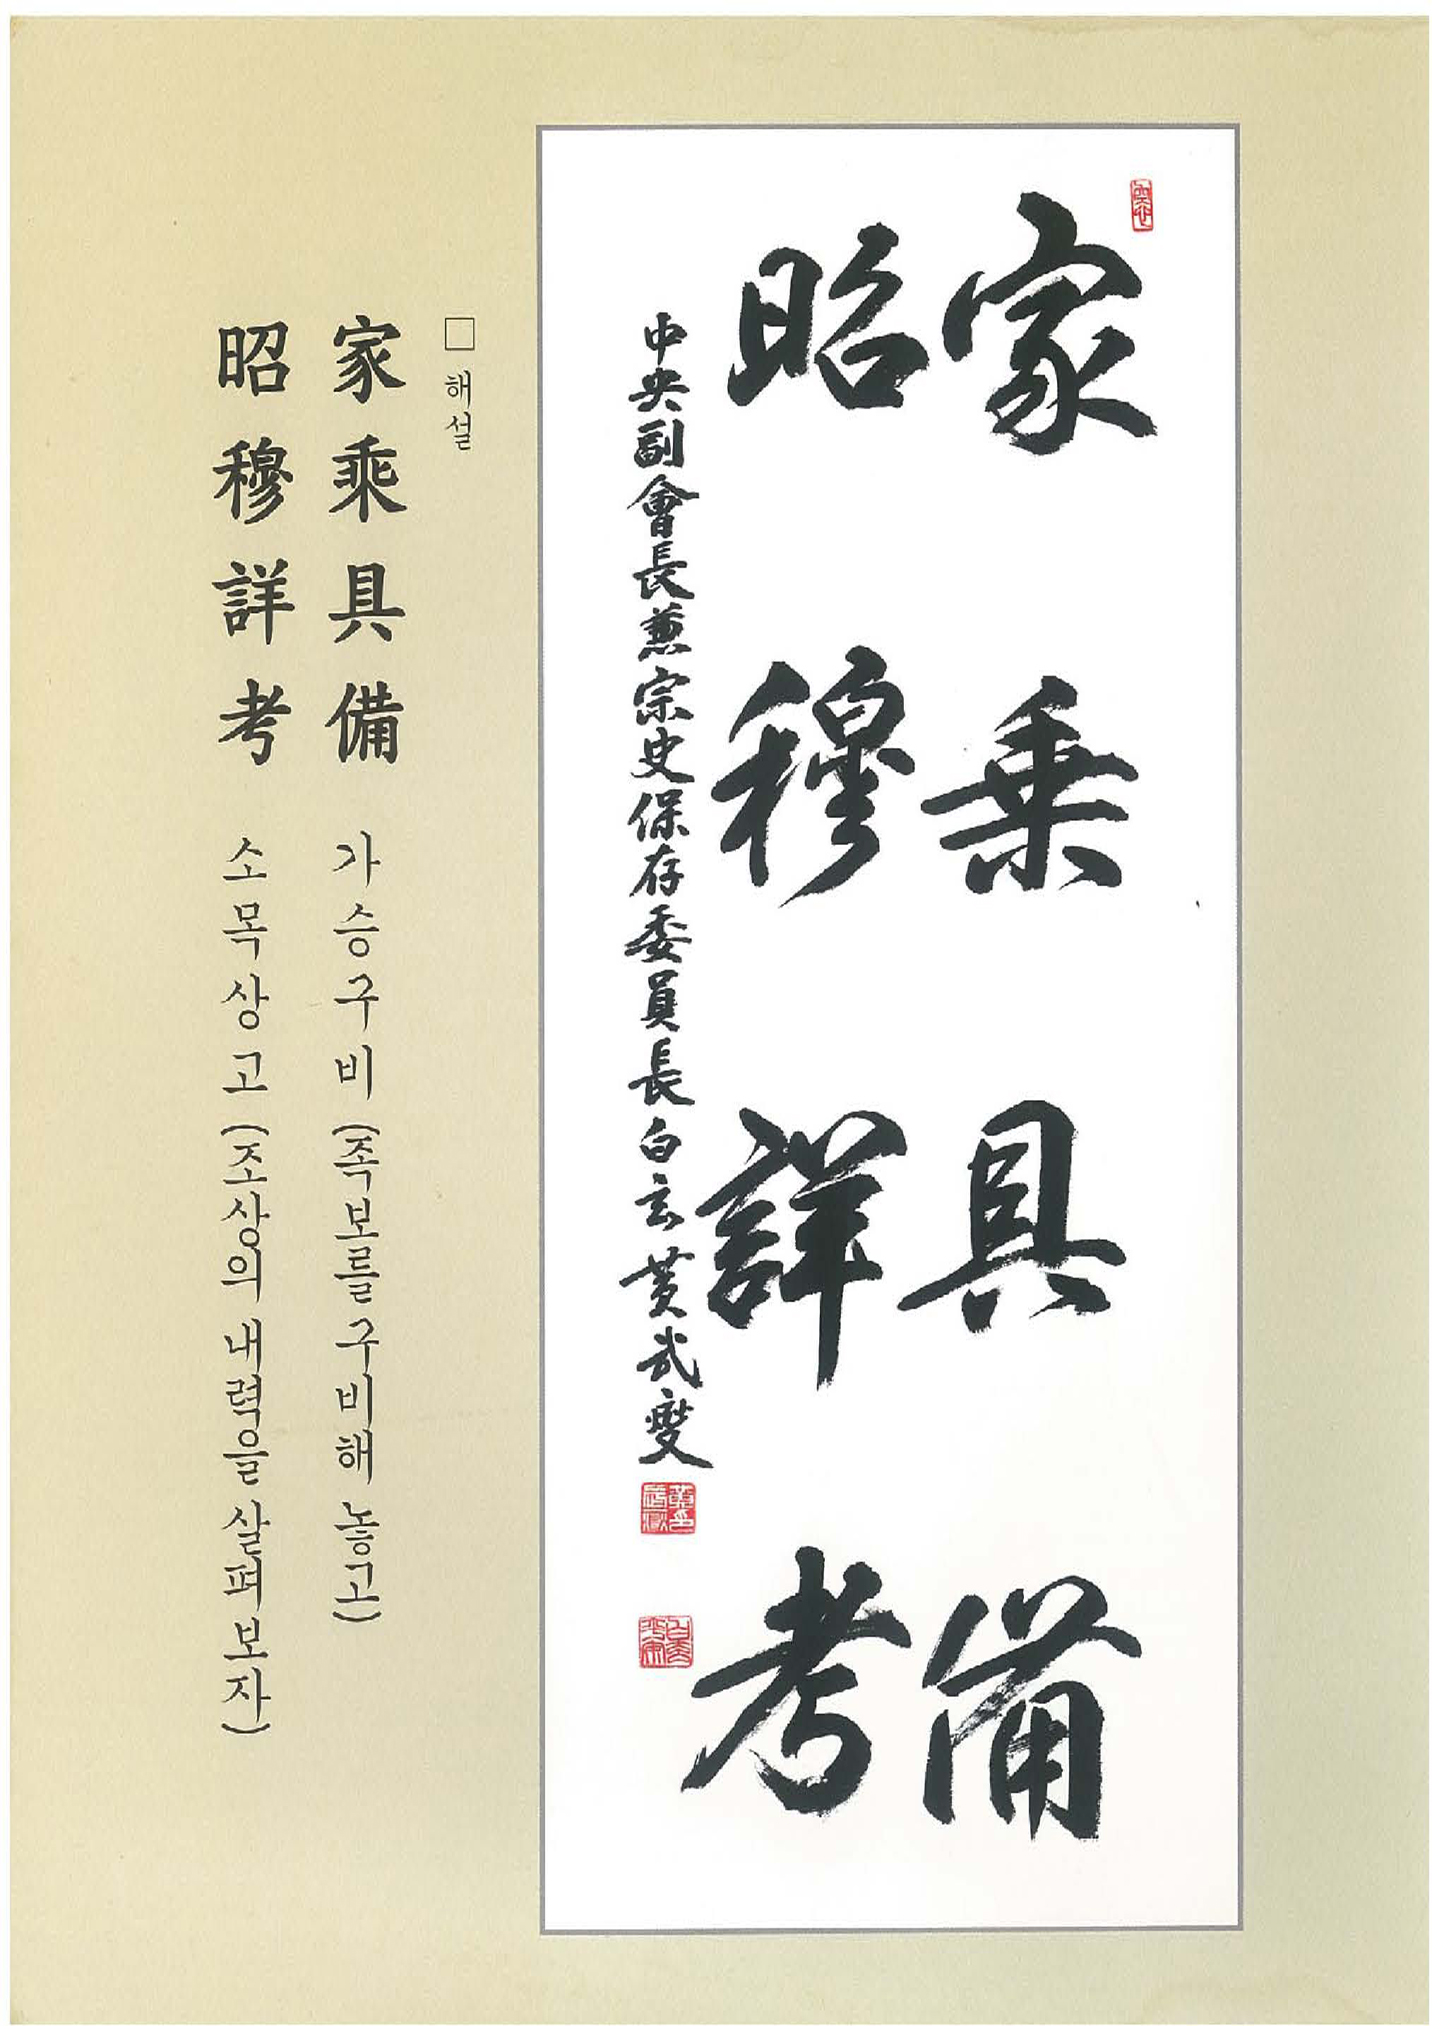 家乘具備
昭穆詳考
中央副會長兼宗史保存委員長白云黃武燮
□ 해설
家乘具備 가승구비 (족보를 구비해 놓고)
昭穆詳考 소목상고 (조상의 내력을 살펴보자)